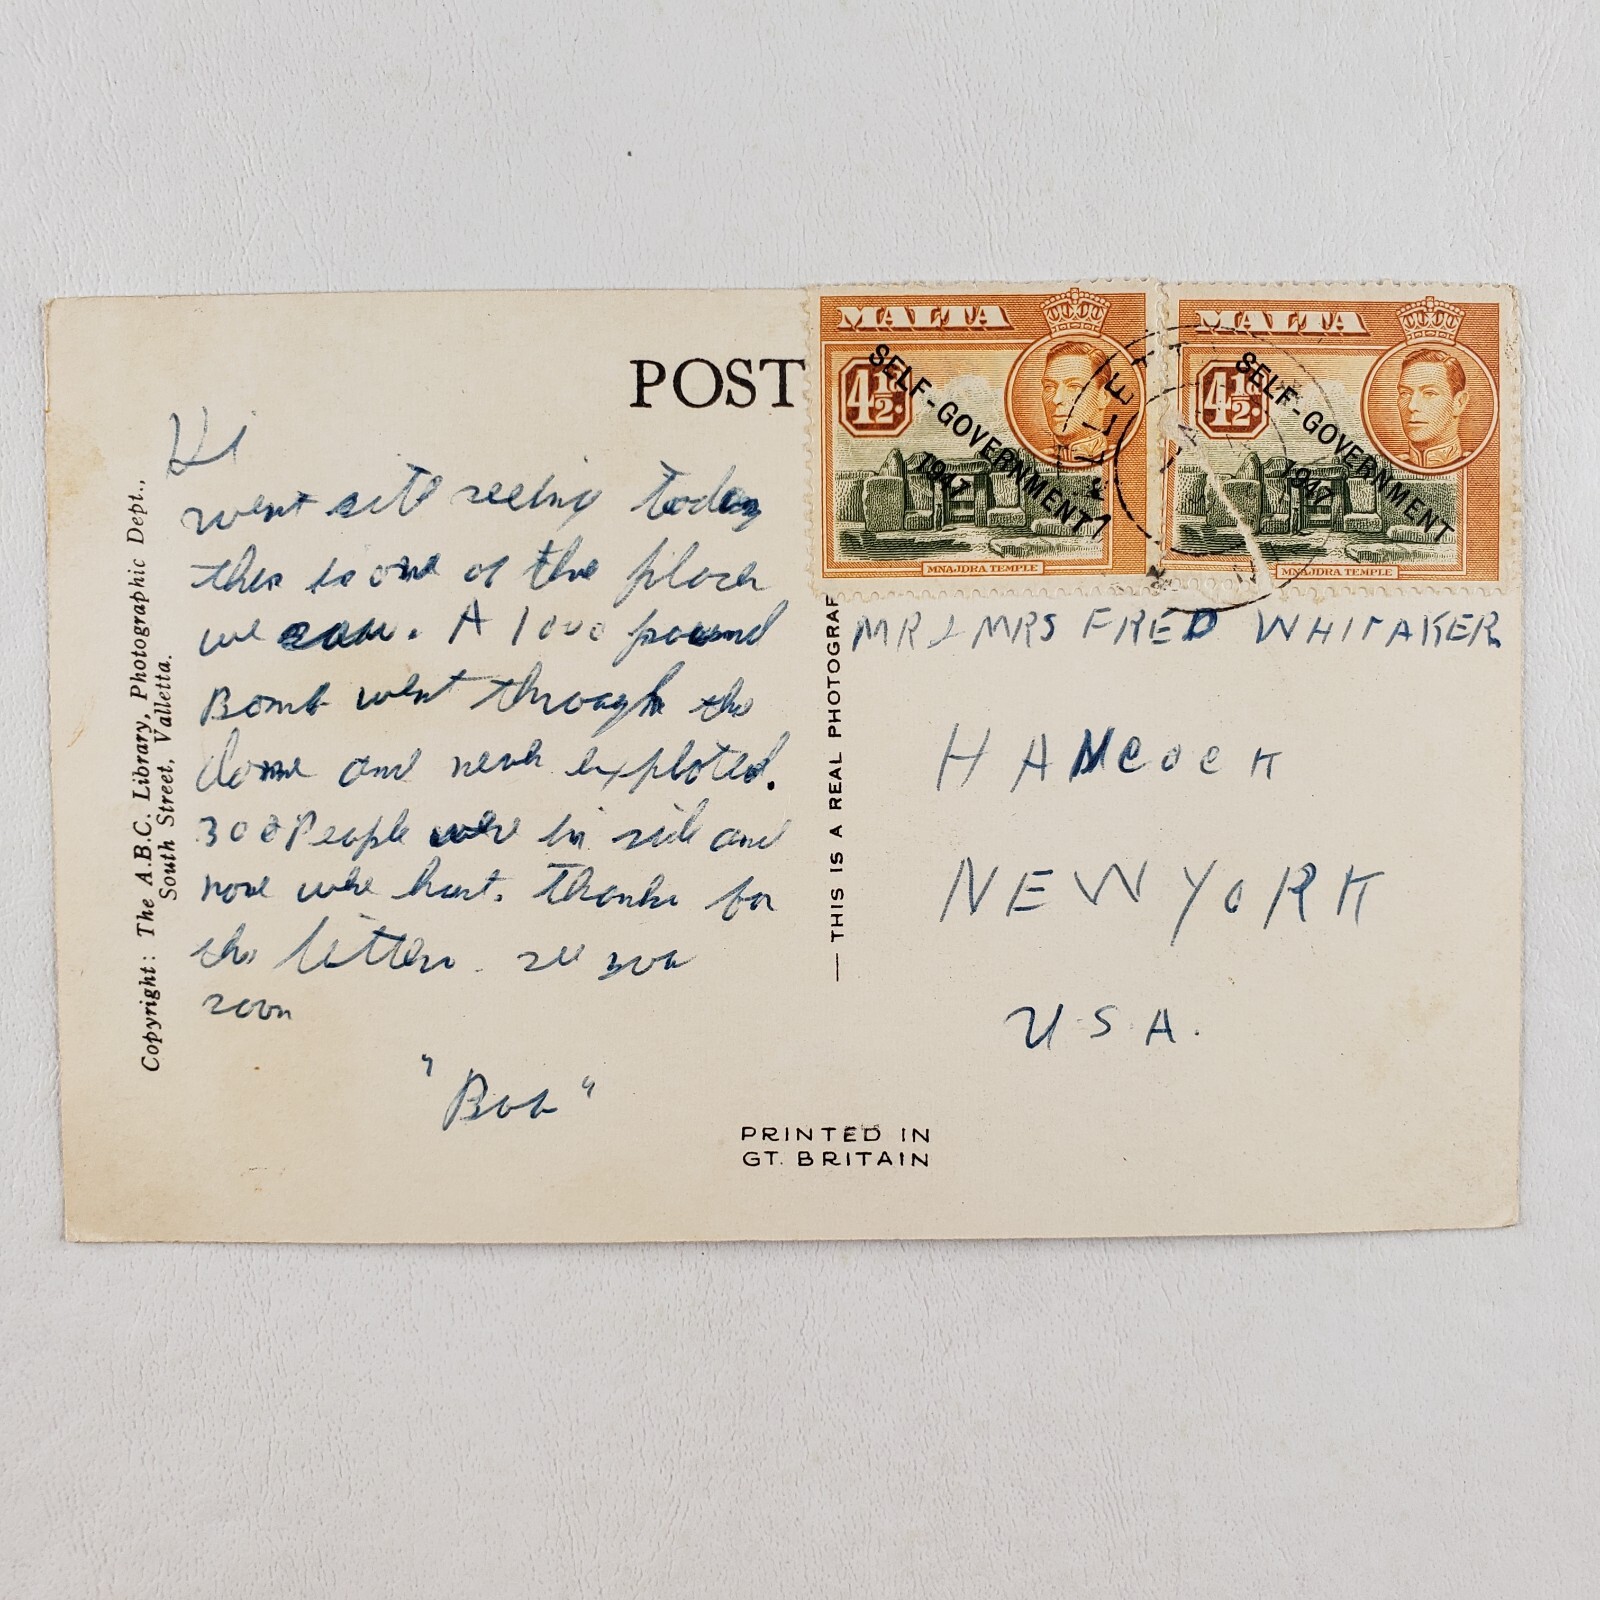 POST
Copyright: The A.B.C. Library, Photographic Dept.,
South Street, Valletta.
Hi
went site seeing today
this is one of the places
we saw. A 1000 pound
Bomb went through the
dome and never exploted.
300 People were in side and
none were hurt. Thanks for
the letters. see you
soon
"Bob"
— THIS IS A REAL PHOTOGRAP
PRINTED IN
GT. BRITAIN
MALTA
4½d.
SELF-GOVERNMENT
1947
MNAJDRA TEMPLE
MALTA
4½d.
SELF-GOVERNMENT
1947
MNAJDRA TEMPLE
MR & MRS FRED WHITAKER
HANCOCK
NEW YORK
U.S.A.